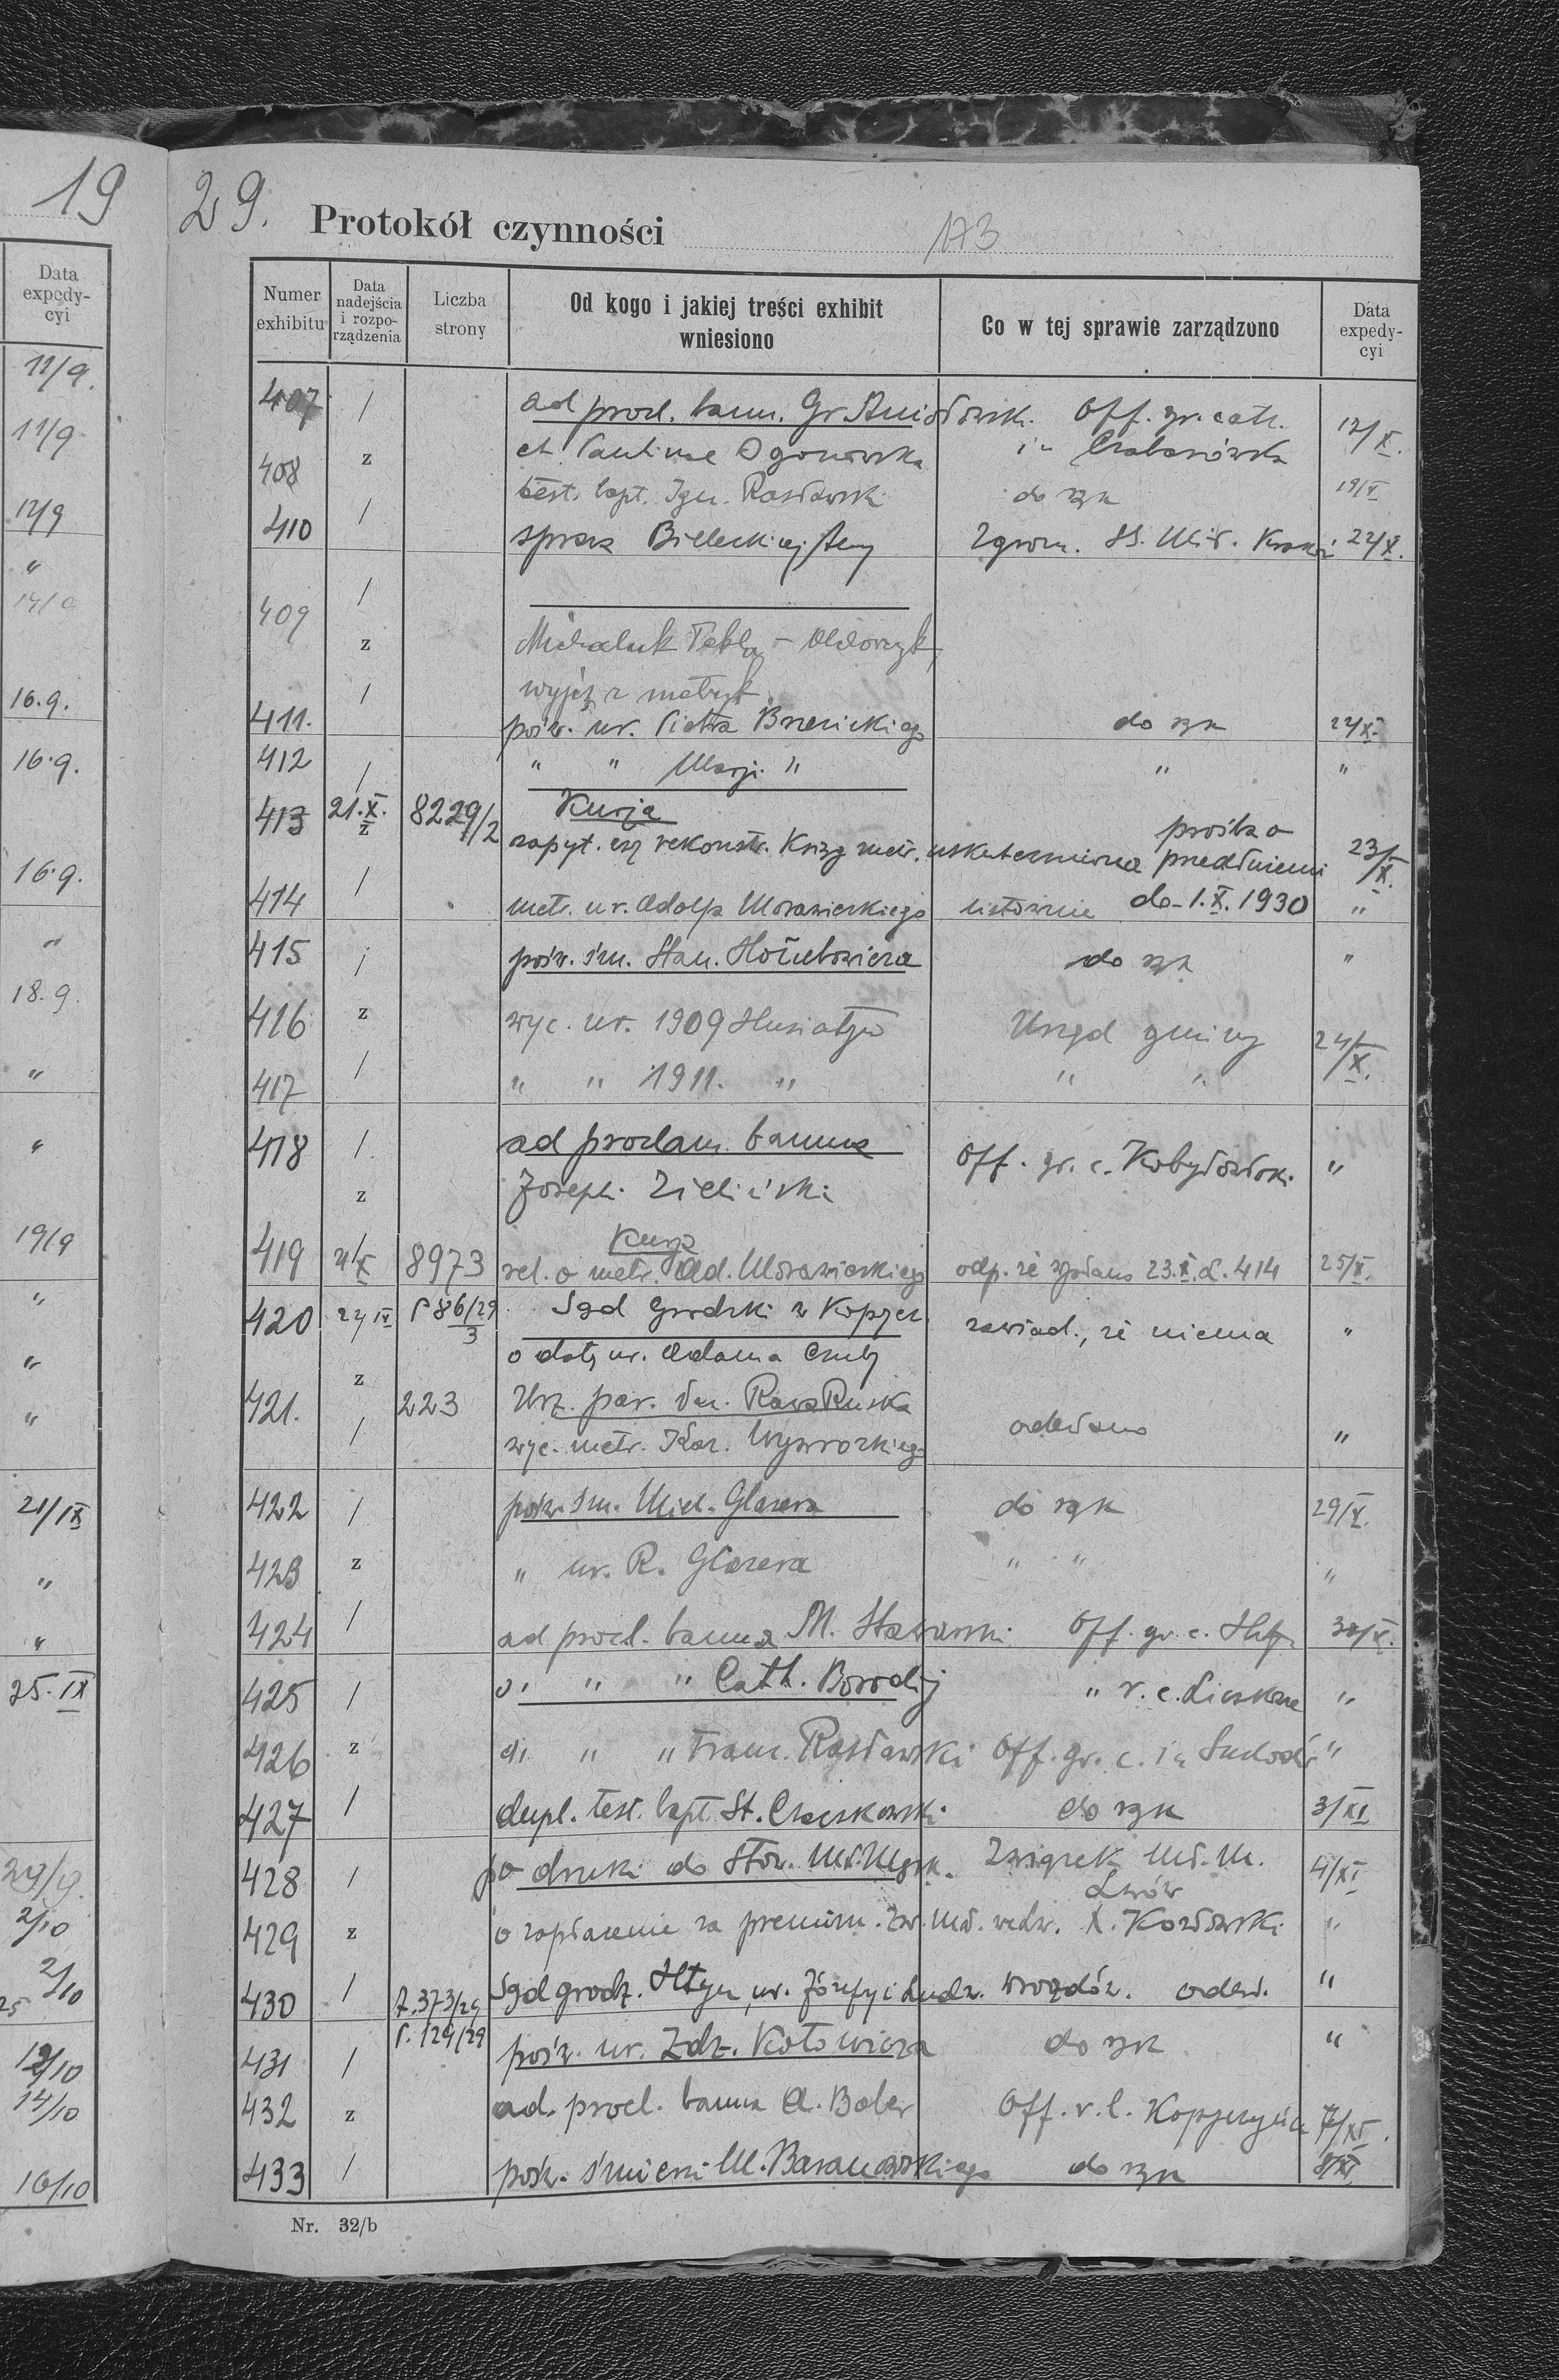 19
Data
expedy-
cyi
11/9.
11/9
12/9
"
14/9
16.9.
16.9.
16.9.
"
18.9.
"
"
19/9
"
"
"
21/IX
"
"
25.IX
29/9.
2/10
2/10
25
12/10
14/10
16/10
29. Protokół czynności 173
Numer exhibitu
Data nadejścia i rozpo-rządzenia
Liczba strony
Od kogo i jakiej treści exhibit wniesiono
Co w tej sprawie zarządzono
Data expedy-cyi
407 / ad procl. bann. Gr. Off. gr. cath. 17/X.
408 z et Paulinae Ogonowska in
test. bapt. Ign. Rosławski do rąk 19/X
410 / spraw. Bieleckiej Zgrom. SS. Mił. Kraków 22/X.
409 /
z Michaluk Tekla –
/ wyjęż z metryk
411. pośw. ur. Piotra Brzezickiego do rąk 22/X.
412 / " " Marji " " "
413 21.X. z 8229/2 Kurja
prośba o
zapyt. czy rekonstr. Ksiąg metr. uskuteczniona przedłużenie 23/X.
414 / metr. ur. Adolfa Morawieckiego listownie do 1.X.1930 "
415 / pośw. śm. Stan. Hołubowicza do rąk "
416 z wyc. ur. 1909 Husiatyn Urząd gminy 24/X.
417 / " " 1911. " " "
418 / ad proclam. banna Off. gr. c. Kobyłowłok. "
z Joseph. Zieliński
419 Kurja
8973 rel. o metr. Ad. Morawieckiego odp. że wysłano 23.X. L. 414 25/X.
420 P 86/29 3 Sąd Grodzki w Kopycz. zawiad., że niema "
o datę ur. Adama
z
421. / 223 Urz. par. łac. Rawa Ruska
wyc. metr. Kar. odesłano "
422 / pośw. śm. Mich. Glasera do rąk 29/X.
423 z " ur. R. Glasera " " "
424 / ad procl. banna M. Off. gr. c. 30/X.
425 / " " " Cath. Borodij " r. c. "
426 z " " " Franc. Rosławski Off. gr. c. in "
427 / dupl. test. bapt. St. Czaczkowski do rąk 3/XI
428 / po druki do Stow. Mł. Męsk. Związek Mł. M. 4/XI
Lwów
429 z o zapłacenie za premium. Zw. Mł. X. Kozłowski "
430 / Z. 373/29 Sąd grodz. ur. Józefy i Ludw. odesł. "
P. 129/29
431 / pośw. ur. Zdz. Kotowicza do rąk "
432 z ad. procl. banna A. Bober Off. r. l. Kopyczyńce 7/XI.
433 / pośw. śmierci M. Baranowskiego do rąk 8/XI.
Nr. 32/b